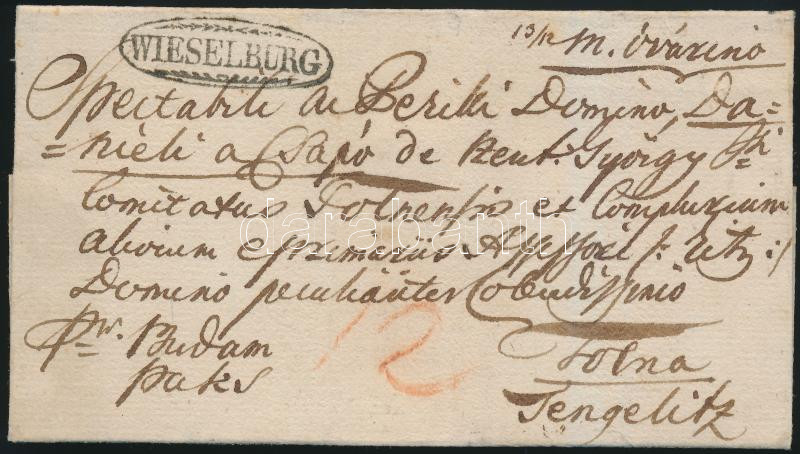 WIESELBURG
13/12 M. óvárino
Spectabili ac Perilli Domino, Da=
=nieli a Csapó de Szent: György
Comitatus Tolnensis et Complurium
aliorum e primariis Assessori
Domino peculiariter Colendissimo
Pr. Budam
Paks
12
Tolna
Tengelitz
darabanth